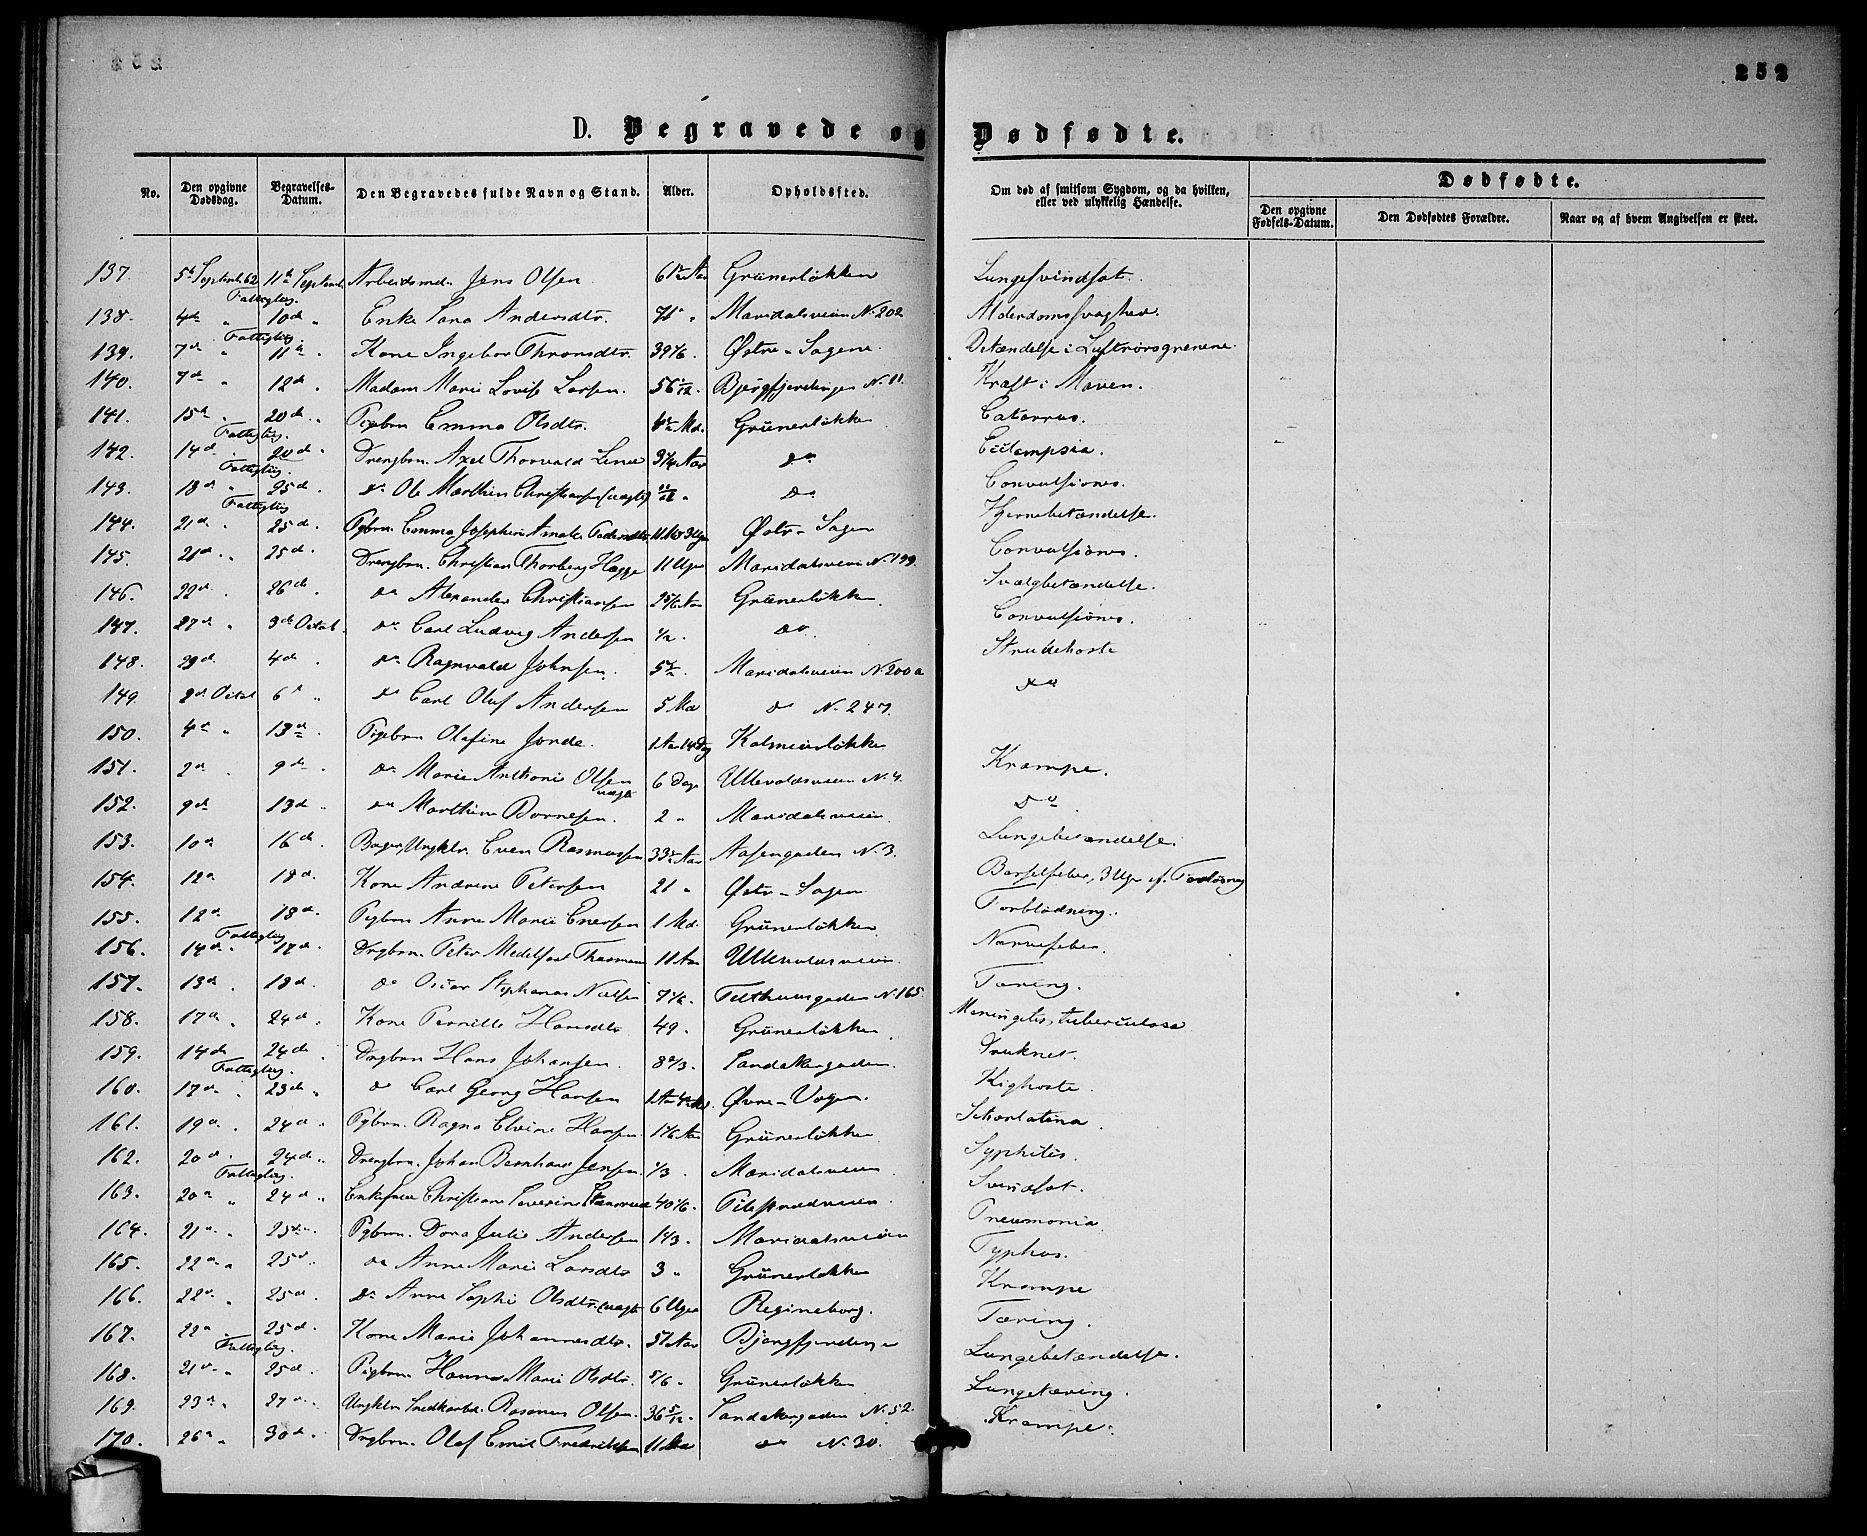 252
D. Begravede og Dødfødte.
No. | Den opgivne Dødsdag. | Begravelses-Datum. | Den Begravedes fulde Navn og Stand. | Alder. | Opholdssted. | Om død af smitsom Sygdom, og da hvilken, eller ved ulykkelig Hændelse. | Dødfødte.
Den opgivne Fødsels-Datum. | Den Dødfødtes Forældre. | Naar og af hvem Angivelsen er skeet.
137. 5te Septemb. 62 11te Septemb. Arbeidsmd. Jens Olsen Aar Grünerløkken Lungesvindsot.
Fattiglig.
138. 4de " 10d " Enke Sara Andersdtr. 71 " Maridalsveien N. 202 Alderdomssvaghed.
Fattiglig.
139. 7de " 11te " Kone Ingebor Thronsdtr. 39 1/6 Østre-Sagene Betændelse i Luftrørsgrenene.
140. 7de " 12d " Madam Marie Lovise Larsen. 56 1/12 Bjergfjerdingen N. 11. Kræft i Maven.
141. 15d " 20d " Pigebrn Emma Olsdtr. Md. Grünerløkken Catarrus.
Fattiglig.
142. 14d " 20d " Drengbrn. Axel Thorvald 3 1/4 Aar do Eclampsia.
Fattiglig.
143. 18d " 25d " do Ole Marthin Christiansen (uægte) " do Convulsiones.
Fattiglig.
144. 21d " 25d " Pgbrn. Emma Josephine Amalie Pedersdtr. 11 Md 3 Uger Østre-Sagen Hjernebetændelse.
145. 21d " 25d " Drengbrn. Christian Thorberg Hagge 11 Uger Maridalsveien N. 199. Convulsiones.
146. 22d " 26d do Alexander Christiansen 2 5/6 Aar Grünerløkken. Svælgbetændelse.
147. 27d " 3de Octob. do Carl Ludvig Andersen 1/2 " do Convulsiones.
148. 29d " 4d " do Ragnvald Johnsen. 5 1/2 " Maridalsveien N. 200a Strubehoste
149. 2d Octob 6d " do Carl Oluf Andersen 5 Md do N. 247. do
150. 4d " 13d " Pigebrn Olafine Jonde. 1 Aar 14 Dg
151. 2d " 9d " do Marie Anthonie Olsen uægte 6 Dage Ullevoldsveien N. 4. Krampe.
152. 9d 13d " do Marthine 2 " Maridalsveien. do
153. 10d 16d " Even Rasmussen 33 1/2 Aar Aasengaden N. 3. Lungebetændelse.
154. 12d 18d. Kone Andrine Petersen 21 " Østre-Sagen Barselfeber, 3 Uger ef. Forløsning
155. 12d 18d. Pigbrn Anne Marie Enersen 1 Md. Grünerløkken Forblødning.
Fattiglig
156. 14d " 17d " Drgbrn. Peter Thasmann 11 Aar Ullevoldsveien. Nervefeber.
157. 13d " 18d " do Oscar Stephanus Nielsen 7 1/2 " Telthusgaden N. 165. Tæring.
158. 17d " 24d " Kone Pernille Hansdtr 49. Grünerløkken Meningitis tuberculosa
159. 14d 24d " Drgbrn Hans Johansen. 8 2/3. Sandakergaden. Druknet.
Fattiglig.
160. 17d " 23d " do Carl Georg Hansen Øvre-Vogen. Kighoste.
161. 19d " 24d " Pgbrn. Ragna Elvine Hansen 1 1/6 Aar Grünerløkken Skarlatina.
162. 20d " 24d " Drengbrn. Johan Bernhard Jensen 1/3 " Maridalsveien Syphilis.
Fattiglig.
163. 20d " 24d " Enkefrue Christiane Severine 40 1/6. Pilestrædveien. Svindsot.
164. 21d " 25d " Pgbrn. Dora Julie Andersen 1 1/3. Maridalsveien Pneumonia.
165. 22d " 25d " do Anne Marie Larsdtr 3 " Grünerløkken Typhus.
166. 22d " 25d " do Anne Sophie Olsdtr. (uægte 6 Uger Regineborg. Krampe
167. 22d " 25d. Kone Marie Johannesdtr. 57 Aar Bjergfjerdingen Tæring.
Fattiglig.
168. 21d " 25d " Pigbrn. Hanna Marie Olsdtr. 5/6 " Grünerløkken Lungebetændelse.
169. 23d " 27d " Ungkln Rasmus Olsen. 36 5/12. Sandakergaden N. 52. Lungetæring.
170. 26d " 30d " Drgbrn. Olaf Emil Fredriksen 11 Md do N. 30. Krampe.